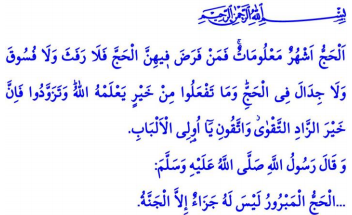 بِسْمِ اللّٰهِ الرَّحْمٰنِ الرَّحِيمِ
اَلْحَجُّ اَشْهُرٌ مَعْلُومَاتٌۚ فَمَنْ فَرَضَ فِيهِنَّ الْحَجَّ فَلَا رَفَثَ وَلَا فُسُوقَ
وَلَا جِدَالَ فِى الْحَجِّۜ وَمَا تَفْعَلُوا مِنْ خَيْرٍ يَعْلَمْهُ اللّٰهُۜ وَتَزَوَّدُوا فَاِنَّ
خَيْرَ الزَّادِ التَّقْوٰىۘ وَاتَّقُونِ يَٓا اُو۬لِى الْاَلْبَابِ.
وَ قَالَ رَسُولُ اللّٰهِ صَلَّى اللّٰهُ عَلَيْهِ وَسَلَّمَ:
...الْحَجُّ الْمَبْرُورُ لَيْسَ لَهُ جَزَاءٌ إِلاَّ الْجَنَّةُ.